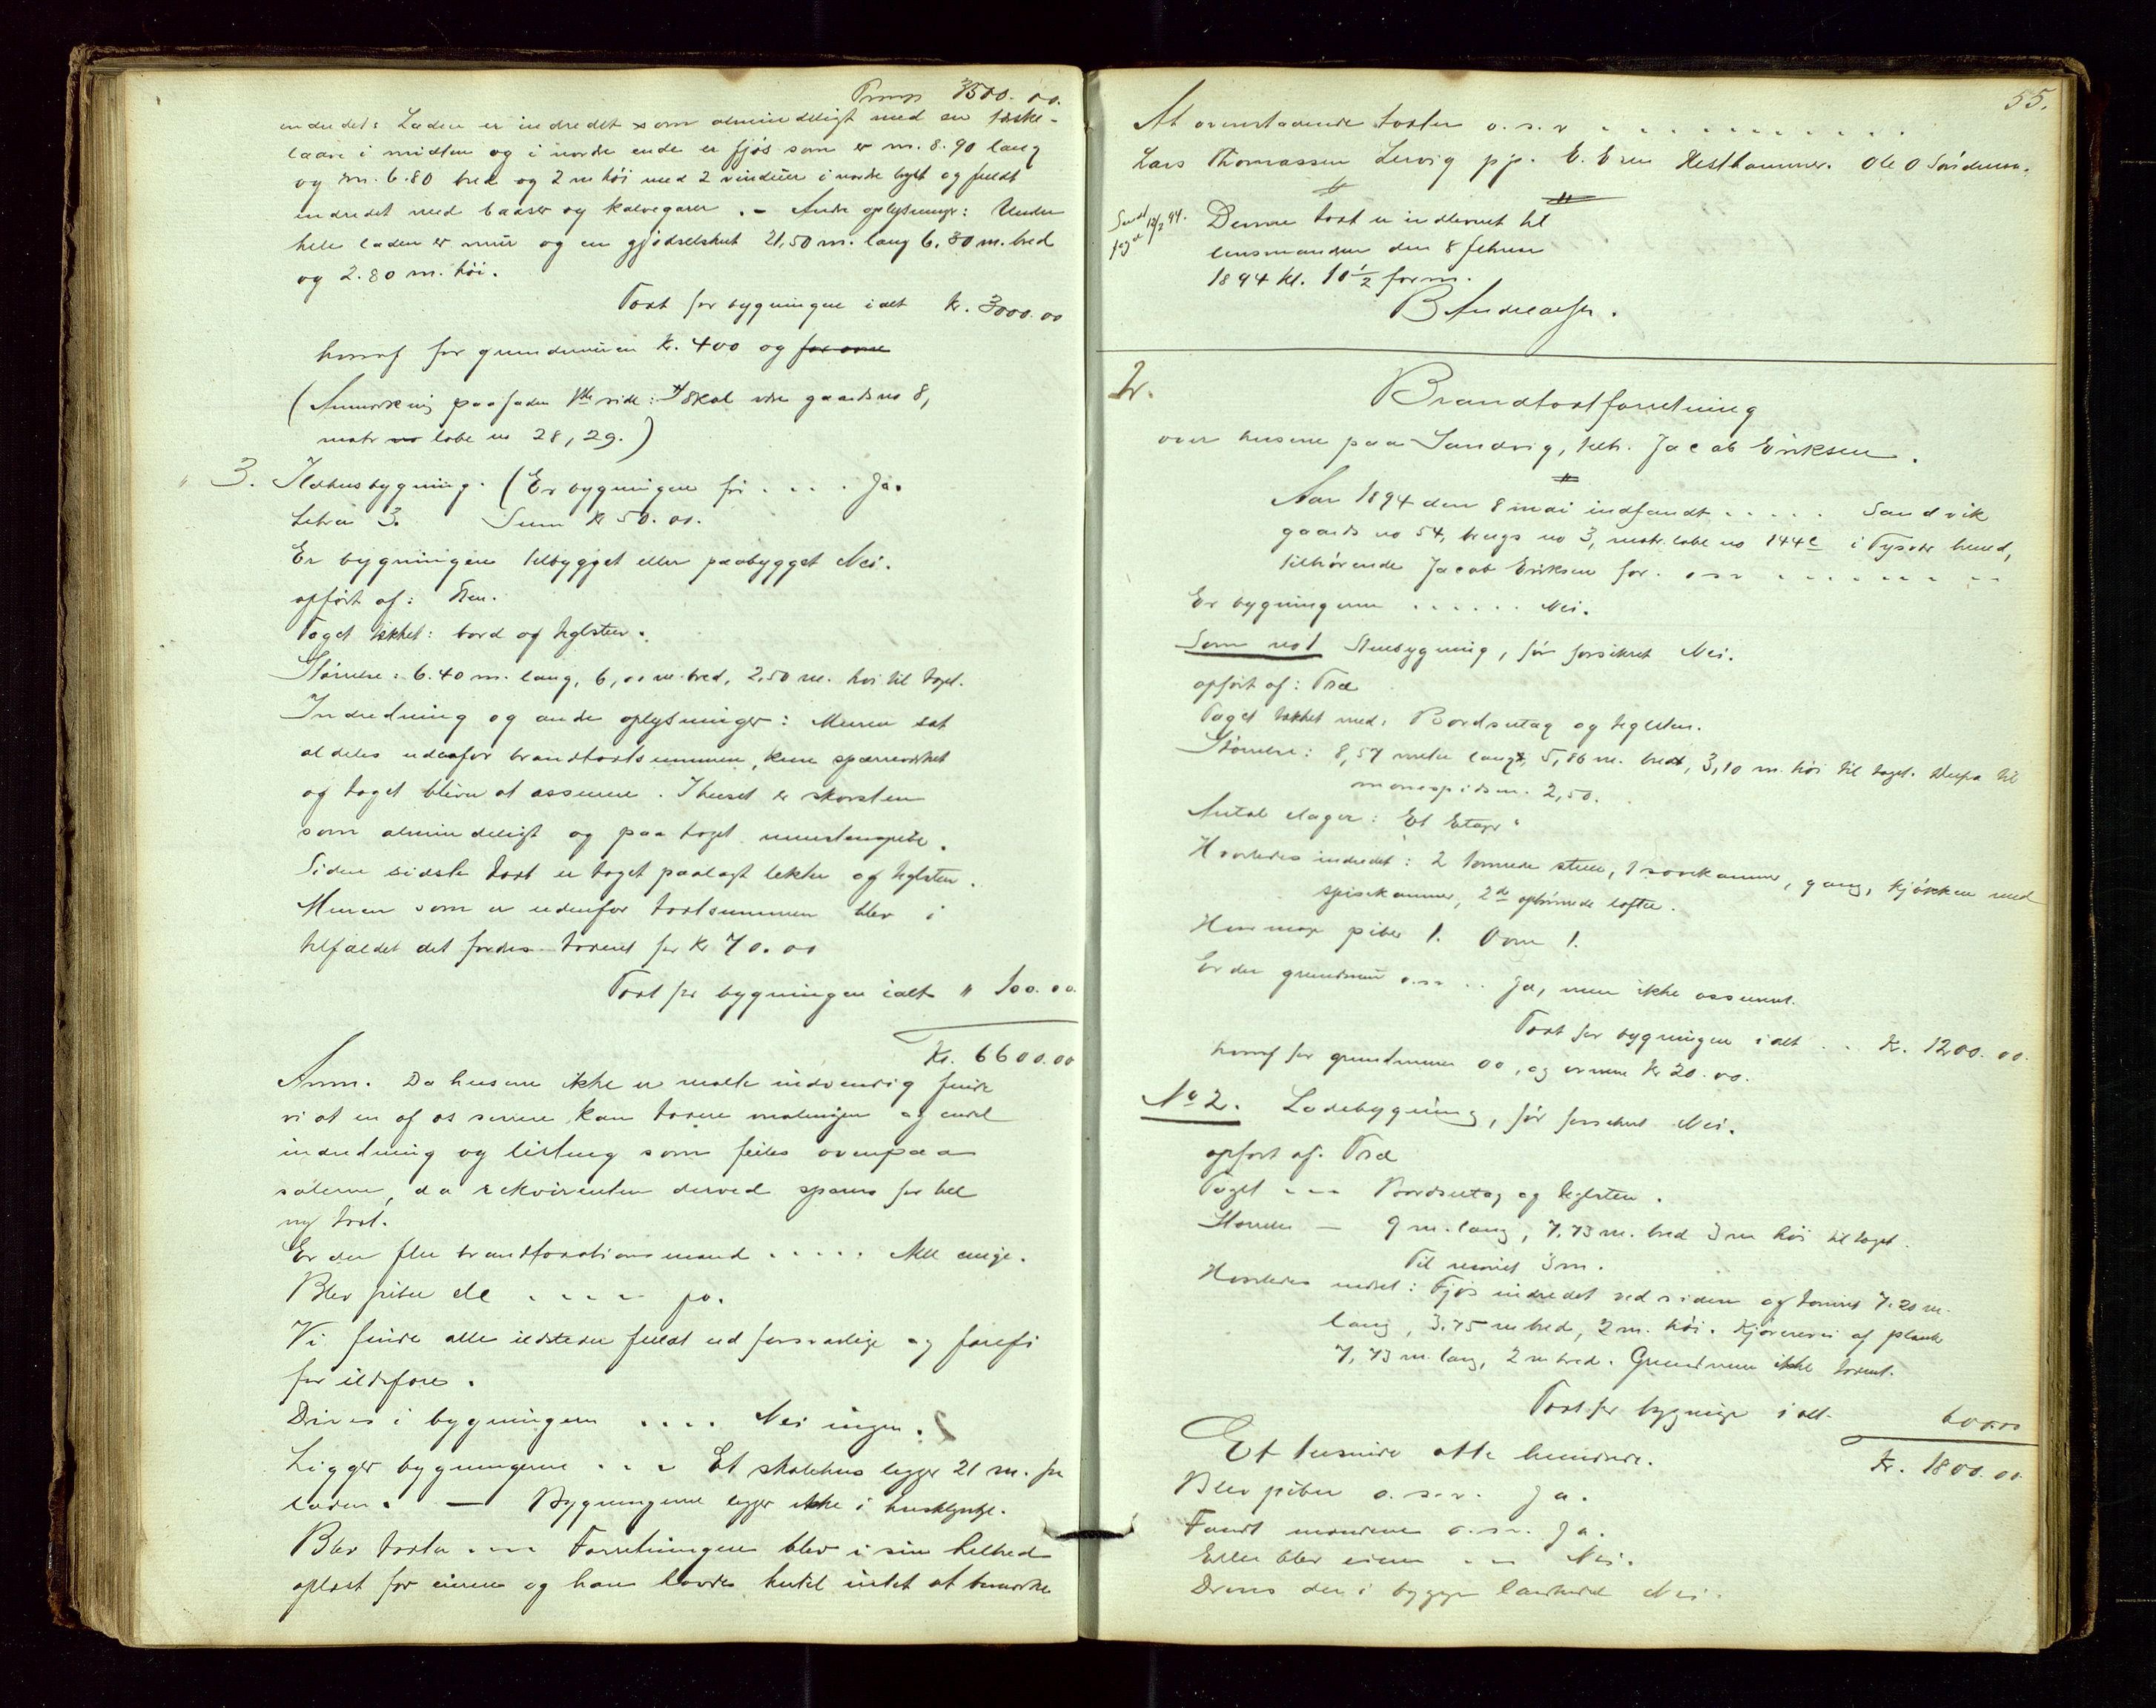 3500.00.
indredet: Laden er indredet som almindeligt med en tærske-
laave i midten og i nordre ende er fjøs som er m. 8.90 lang
og m. 6.80 bred og 2 m høi med 2 vinduer i nordre og fuldt
indredet med baaser og kalvegarer. – Andre oplysninger: Under
hele laden er mur og en gjødselskut 21,50 m. lang 6.80 m. bred
og 2.80 m. høi.
Taxt for bygningen ialt kr. 3000.00
hvoraf for grundmuren kr. 400 og for ovne
(Anmerkning paa 1ste side: skal være gaards no 8,
matr no løbe no 28, 29.)
" 3. Ildhusbygning. (Er bygningen før . . . . Ja.
Litra 3. Sum kr 50.00.
Er bygningen tilbygget eller paabygget Nei.
opført af: Sten.
Taget tækket: bord og teglsten.
Størrelse: 6.40 m. lang, 6,00 m. bred, 2.50 m. høi til taget.
Indredning og andre oplysninger: Muren sat
aldeles udenfor brandtaxtsummen, kun sperreverket
og taget bliver at assurere. I huset er skorsten
som almindeligt og paa taget murstenspibe.
Siden sidste taxt er taget paalagt lekter og teglsten.
Muren som er udenfor taxtsummen blev i
tilfældet det fordres taxeret for kr 70.00
Taxt for bygningen ialt " 100.00.
Kr. 6600.00
Anm. Da husene ikke er malte indvendig finder
vi at en af os senere kan taxere malingen og endel
indredning og listing som feiles ovenpaa
salerne, da rekvirenten derved spares for hel
ny taxt.
Er der flere brandtaxationsmænd . . . . . Alle enige.
Blev piber etc . . . . - ja.
Vi finder alle ildsteder fuldt ud forsvarlige og farefri
for ildsfare.
Drives i bygningerne . . . . Nei ingen.
Ligger bygningerne . . . Et skolehus ligger 21 m. fra
laden. — Bygningerne ligger ikke i husklynge.
Blev taxten . . . Forretningen blev i sin helhed
oplæst for eieren og han havde hertil intet at bemærke
55.
At ovenstaaende taxter o. s. v . . . . . . . . . . .
Lars Thomassen Lervig pp. E. Hesthammer. Ole O
Denne taxt er indleveret til
lensmanden den 8 februar
1894 kl. 10 1/2 form.
B Andreassen.
2.
Brandtaxtforretning
over husene paa Sandvig, tilh. Jacob Eriksen.
Aar 1894 den 8 mai indfandt . . . . . Sandvik
gaards no 54, brugs no 3, matr. løbe no 144c i Tysvær herred,
tilhørende Jacob Eriksen for. o s v . . . . . . . .
Er bygningerne . . . . . . Nei.
Som no 1 Stuebygning, før forsikret Nei.
opført af: Træ
Taget tækket med: Bordsutag og teglsten.
Størrelse: 8,57 meter langt, 5,86 m. bredt, 3,10 m. høi til taget. Derfra til
mønespidsen. 2,50.
Antal etager: Et Etage.
Hvorledes indredet: 2 tømrede stuer, 1 sovekammer, gang, kjøkken med
spisekammer, 2de lofter.
Hvormange piber 1. Ovne 1.
Er der grundmur o.s.v. . Ja, men ikke assureret.
Taxt for bygningen ialt . . Kr. 1200.00.
hvoraf for grundmuren 00, og ovnene kr 20.00.
No 2. Ladebygning, før forsikret Nei.
opført af. Træ
Taget - - - Bordsutag og teglsten.
Størrelse — 9 m. lang, 7,73 m. bred 3 m høi til taget.
Til mønet 3 m.
Hvorledes indredet: Fjøs indredet ved siden og tømret 7.20 m.
lang, 3.75 m bred, 2 m. høi. Kjørevei af plank
7,73 m. lang, 2 m bred. Grundmuren ikke taxeret.
Taxt for bygninge ialt 600.00
Et tusinde otte hundrede. Kr. 1800.00
Blev piber o. s. v. Ja.
Fandt mændene o. s. v. Ja.
Eller blev eieren - - - Nei.
Drives der i bygge Nei.